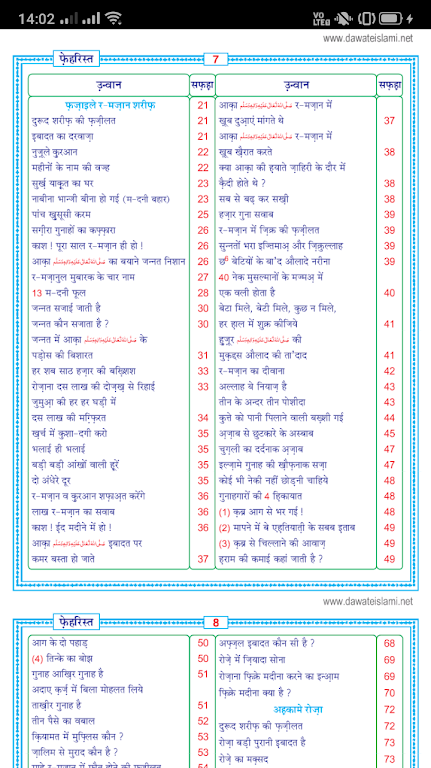 14:02
VO LTE
www.dawateislami.net
फ़ेहरिस्त
7
उ़न्वान सफ़हा
फ़ज़ाइले र-मज़ान शरीफ़ 21
दुरूद शरीफ़ की फ़ज़ीलत 21
इबादत का दरवाज़ा 21
नुज़ूले क़ुरआन 22
महीनों के नाम की वज्ह 22
सुर्ख़ याक़ूत का घर 23
नाबीना भान्जी बीना हो गई (म-दनी बहार) 23
पांच ख़ुसूसी करम 25
सग़ीरा गुनाहों का कफ़्फ़ारा 26
काश ! पूरा साल र-मज़ान ही हो ! 26
आक़ा صَلَّى اللهُ تَعَالٰى عَلَيْهِ وَاٰلِهٖ وَسَلَّم का बयाने जन्नत निशान 26
र-मज़ानुल मुबारक के चार नाम 27
13 म-दनी फूल 28
जन्नत सजाई जाती है 30
जन्नत कौन सजाता है ? 30
जन्नत में आक़ा صَلَّى اللهُ تَعَالٰى عَلَيْهِ وَاٰلِهٖ وَسَلَّم के
पड़ोस की बिशारत 31
हर शब साठ हज़ार की बख़्शिश 33
रोज़ाना दस लाख की दोज़ख़ से रिहाई 33
जुमुआ़ की हर हर घड़ी में
दस लाख की मग़्फ़िरत 34
ख़र्च में कुशा-दगी करो 35
भलाई ही भलाई 35
बड़ी बड़ी आंखों वाली हूरें 35
दो अंधेरे दूर 35
र-मज़ान व क़ुरआन शफ़ाअ़त करेंगे 36
लाख र-मज़ान का सवाब 36
काश ! ई़द मदीने में हो ! 36
आक़ा صَلَّى اللهُ تَعَالٰى عَلَيْهِ وَاٰلِهٖ وَسَلَّم इबादत पर
कमर बस्ता हो जाते 37
उ़न्वान सफ़हा
आक़ा صَلَّى اللهُ تَعَالٰى عَلَيْهِ وَاٰلِهٖ وَسَلَّم र-मज़ान में
ख़ूब दुआ़एं मांगते थे 37
आक़ा صَلَّى اللهُ تَعَالٰى عَلَيْهِ وَاٰلِهٖ وَسَلَّم र-मज़ान में
ख़ूब ख़ैरात करते 38
क्या आक़ा की ह़याते ज़ाहिरी के दौर में
क़ैदी होते थे ? 38
सब से बढ़ कर सख़ी 38
हज़ार गुना सवाब 39
र-मज़ान में ज़िक्र की फ़ज़ीलत 39
सुन्नतों भरा इज्तिमाअ़ और ज़िक्रुल्लाह 39
छ6 बेटियों के बा'द औलादे नरीना 39
40 नेक मुसल्मानों के मज्मअ़ में
एक वली होता है 40
बेटा मिले, बेटी मिले, कुछ न मिले,
हर ह़ाल में शुक्र कीजिये 41
हुज़ूर صَلَّى اللهُ تَعَالٰى عَلَيْهِ وَاٰلِهٖ وَسَلَّم की
मुक़द्दस औलाद की ता'दाद 41
र-मज़ान का दीवाना 42
अल्लाह बे नियाज़ है 43
तीन के अन्दर तीन पोशीदा 43
कुत्ते को पानी पिलाने वाली बख़्शी गई 44
अ़ज़ाब से छुटकारे के अस्बाब 45
चुग़ली का दर्दनाक अ़ज़ाब 47
इल्ज़ामे गुनाह की ख़ौफ़नाक सज़ा 47
कोई भी नेकी नहीं छोड़नी चाहिये 48
गुनाहगारों की 4 ह़िकायात 48
(1) क़ब्र आग से भर गई ! 48
(2) मापने में बे एहतियाती के सबब इताब 49
(3) क़ब्र से चिल्लाने की आवाज़ 49
ह़राम की कमाई कहां जाती है ? 49
www.dawateislami.net
फ़ेहरिस्त
8
आग के दो पहाड़ 50
(4) तिन्के का बोझ 50
गुनाह आख़िर गुनाह है 51
अदाए क़र्ज़ में बिला मोहलत लिये
ताख़ीर गुनाह है 51
तीन पैसे का वबाल 52
क़ियामत में मुफ़्लिस कौन ? 53
ज़ालिम से मुराद कौन है ? 53
54
अफ़्ज़ल इबादत कौन सी है ? 68
रोज़े में ज़ियादा सोना 69
रोज़ाना फ़िक्रे मदीना करने का इन्आ़म 69
फ़िक्रे मदीना क्या है ? 70
अह़कामे रोज़ा 72
दुरूद शरीफ़ की फ़ज़ीलत 72
रोज़ा बड़ी पुरानी इबादत है 73
रोज़े का मक़्सद 73